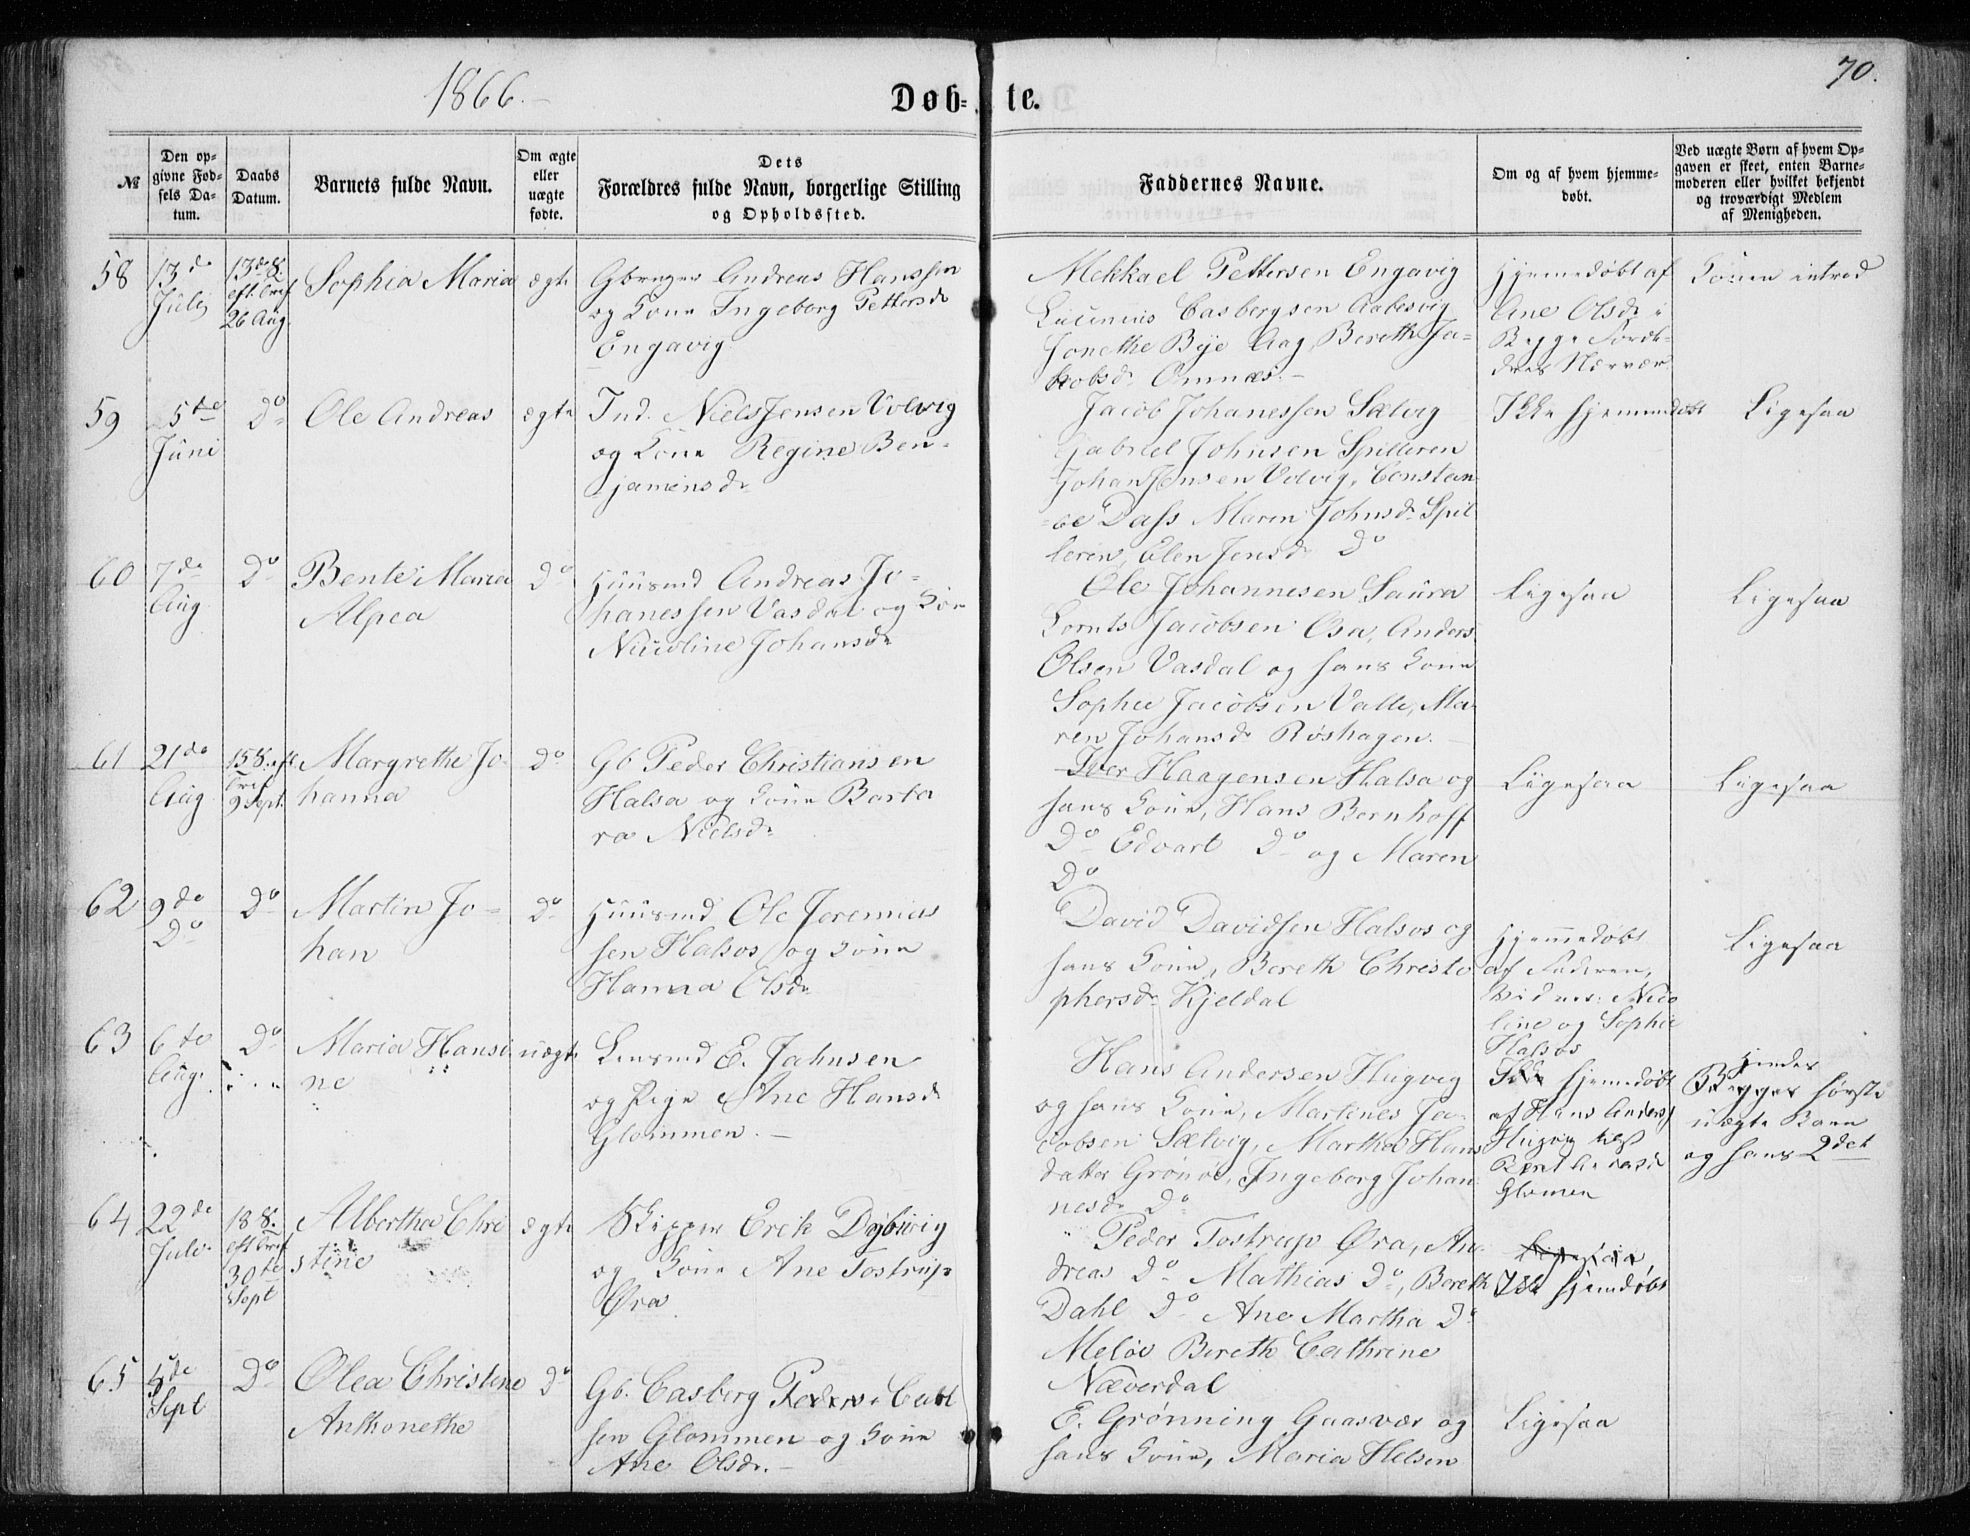 1866.
Døb-te.
70.
№
Den op-
givne Fød-
sels Da-
tum.
Daabs
Datum.
Barnets fulde Navn.
Om ægte
eller
uægte
fødte.
Dets
Forældres fulde Navn, borgerlige Stilling
og Opholdssted.
Faddernes Navne.
Om og af hvem hjemme-
døbt.
Ved uægte Børn af hvem Op-
gaven er skeet, enten Barne-
moderen eller hvilket bekjendt
og troværdigt Medlem
af Menigheden.
58
13de
Juli
26 Aug.
Sophia Maria
ægte
Andreas Hanssen
og Kone Ingeborg Pettersdr
Engavig
Mekkael Pettersen Engavig
Casbergsen
Jonethe Bye Aag, Bereth Ja-
kobsdr Omnæs.
Hjemedøbt af
Ane Olsdr i
Begge Foræl-
dres Nærvær.
Konen introd
59
5te
Juni
Do
Ole Andreas
ægte
Ind. Niels Jensen Volvig
og Kone Regine Ben-
jaminsdr
Jacob Johanessen Sælvig
Gabriel Johnsen Spilleren
Johan Jensen Volvig, Constan-
ce Dass Maren Johnsdr Spil
leren, Elen Jensdr Do
Ikke hjemmedøbt
Ligesaa
60
7de
Aug
Do
Bente Maria
Alpea
Do
Huusmd Andreas Jo-
hanessen Vasdal og Kone
Nicoline Johansdr
Ole Johannesen Saura
Jacobsen Osa, Anders
Olsen Vasdal og hans Kone
Sophie Jacobsen Valle, Ma-
ren Johansdr Røshagen.
Ligesaa
Ligesaa
61
21de
Aug
9 Sept.
Margrethe Jo-
hanna
Do
Gb Peder Christiansen
Halsa og Kone Barba
ra Nielsdr
Iver Haagensen Halsa og
hans Kone, Hans Bernhoff
Do Edvart Do og Maren
Do
Ligesaa
Ligesaa
62
9de
Do
Do
Martin Jo-
han
Do
Huusmd Ole Jeremias
sen Halsos og Kone
Hanna Olsdr
David Davidsen Halsos og
hans Kone, Bereth Christo
phersdr Kjeldal
Hjemmedøbt
af Faderen,
Vidner: Nico
line og Sophie
Halsos
Ligesaa
63
6te
Aug.
Do
Maria Hansi
ne
uægte
E. Jahnsen
og Pige Ane Hansdr
Glommen.
Hans Andersen Hugvig
og hans Kone, Martines Ja-
cobsen Sælvig, Martha Hans
datter Grønø, Ingeborg Johan
nesdr Do
hjemedøbt
af Hans Anders
Glomen
Hendes
Begges første
uægte Barn
og hans 2det
64
22de
Juli
18 S.
30te
Sept
Albertha Chri
stine
ægte
Skipper Erik Dybwig
og Kone Ane Tostrup
Øra
Peder Tostrup Øra, An-
dreas Do Mathias Do, Bereth
Dahl Do Ane Martha Do
Meløe Bereth Cathrine
Næverdal
Ligesaa
Ikke hjemdøbt
65
5de
Sept
Do
Olea Christine
Anthonethe
Do
Gb. Casberg
sen Glommen og Kone
Ane Olsdr.
E. Grønning Gaasvær og
hans Kone, Maria Helsen
Ligesaa